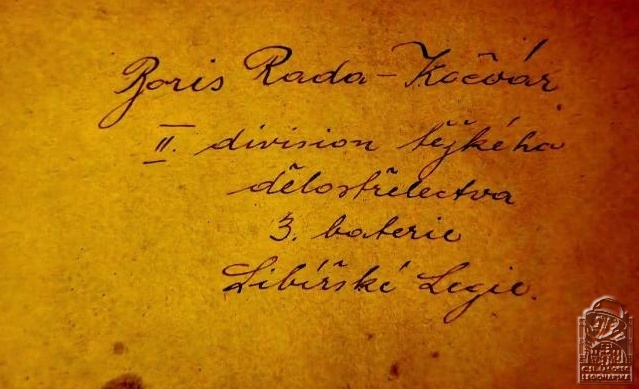 Boris Rada-Kočvár
II. division těžkého
dělostřelectva
3. baterie
Sibířské Legie.